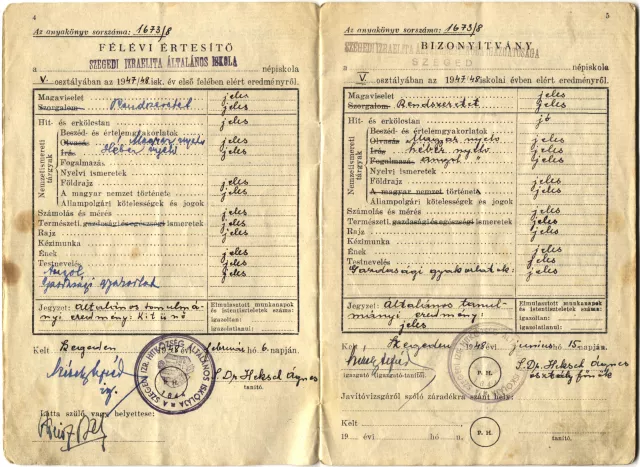 4
Az anyakönyv sorszáma: 1673/8
FÉLÉVI ÉRTESITŐ
SZEGEDI IZRAELITA ÁLTALÁNOS ISKOLA
a népiskola
V osztályában az 1947/48 isk. év első felében elért eredményről.
Magaviselet jeles
Szorgalom Rendszeretet jeles
Hit- és erkölcstan jeles
Nemzetismereti tárgyak
Beszéd- és értelemgyakorlatok
Olvasás Magyar nyelv jeles
Írás Héber nyelv jeles
Fogalmazás
Nyelvi ismeretek
Földrajz jeles
A magyar nemzet története jeles
Állampolgári kötelességek és jogok
Számolás és mérés jeles
Természeti gazdasági és egészségi ismeretek jeles
Rajz jeles
Kézimunka
Ének jeles
Testnevelés jeles
Angol jeles
Gazdasági gyakorlat
Jegyzet: Általános tanulmányi eredmény: Kitünő
Elmulasztott munkanapok és istentiszteletek száma:
igazoltan:
igazolatlanul:
Kelt Szegeden 1948 évi február hó 6. napján.
A SZEGEDI IZR. HITKÖZSÉG ÁLTALÁNOS ISKOLÁJA
S. Dr. Heksch Ágnes
tanító.
Látta szülő vagy helyettese:
5
Az anyakönyv sorszáma: 1673/8
BIZONYITVÁNY
SZEGED
a népiskola
V. osztályában az 1947/48 iskolai évben elért eredményről.
Magaviselet jeles
Szorgalom Rendszeretet jeles
Hit- és erkölcstan jó
Nemzetismereti tárgyak
Beszéd- és értelemgyakorlatok jeles
Olvasás Magyar nyelv jeles
Írás héber nyelv jeles
Fogalmazás angol " jeles
Nyelvi ismeretek
Földrajz jeles
A magyar nemzet története jeles
Állampolgári kötelességek és jogok
Számolás és mérés jeles
Természeti gazdasági és egészségi ismeretek jeles
Rajz jeles
Kézimunka
Ének jeles
Testnevelés jeles
Gazdasági gyakorlatok: jeles
Jegyzet: Általános tanulmányi eredmény: jeles
Elmulasztott munkanapok és istentiszteletek száma:
igazoltan:
igazolatlanul:
Kelt Szegeden 1948 évi junius hó 15. napján.
P. H.
S. Dr. Heksch Ágnes
osztályfőnök
igazgató (igazgató-tanító).
tanító.
Javítóvizsgáról szóló záradékra szánt hely:
Kelt
19 évi hó n.
P. H.